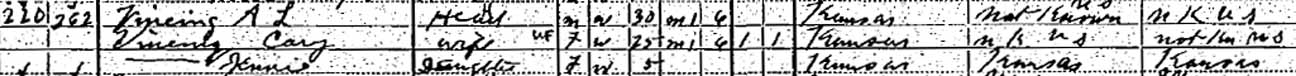 220 262 Vincing A L Head m w 30 m1 6 Kansas not Known n K U S
Vincing Cary wife WF F w 25 m1 6 1 1 Kansas n K U S not Knows
Jennie Daughter F w 5 Kansas Kansas Kansas